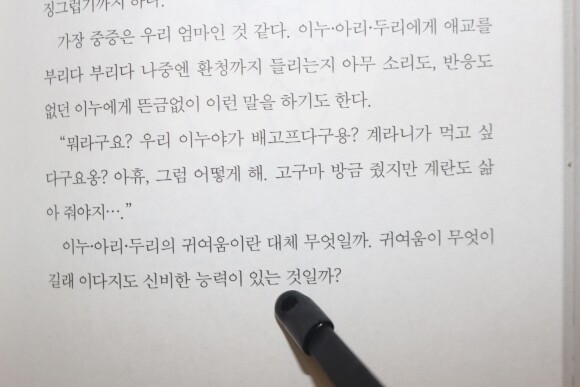 징그럽기까지 하다.
가장 중증은 우리 엄마인 것 같다. 이누·아리·두리에게 애교를
부리다 부리다 나중엔 환청까지 들리는지 아무 소리도, 반응도
없던 이누에게 뜬금없이 이런 말을 하기도 한다.
“뭐라구요? 우리 이누야가 배고프다구용? 계라니가 먹고 싶
다구요옹? 아휴, 그럼 어떻게 해. 고구마 방금 줬지만 계란도 삶
아 줘야지….”
이누·아리·두리의 귀여움이란 대체 무엇일까. 귀여움이 무엇이
길래 이다지도 신비한 능력이 있는 것일까?